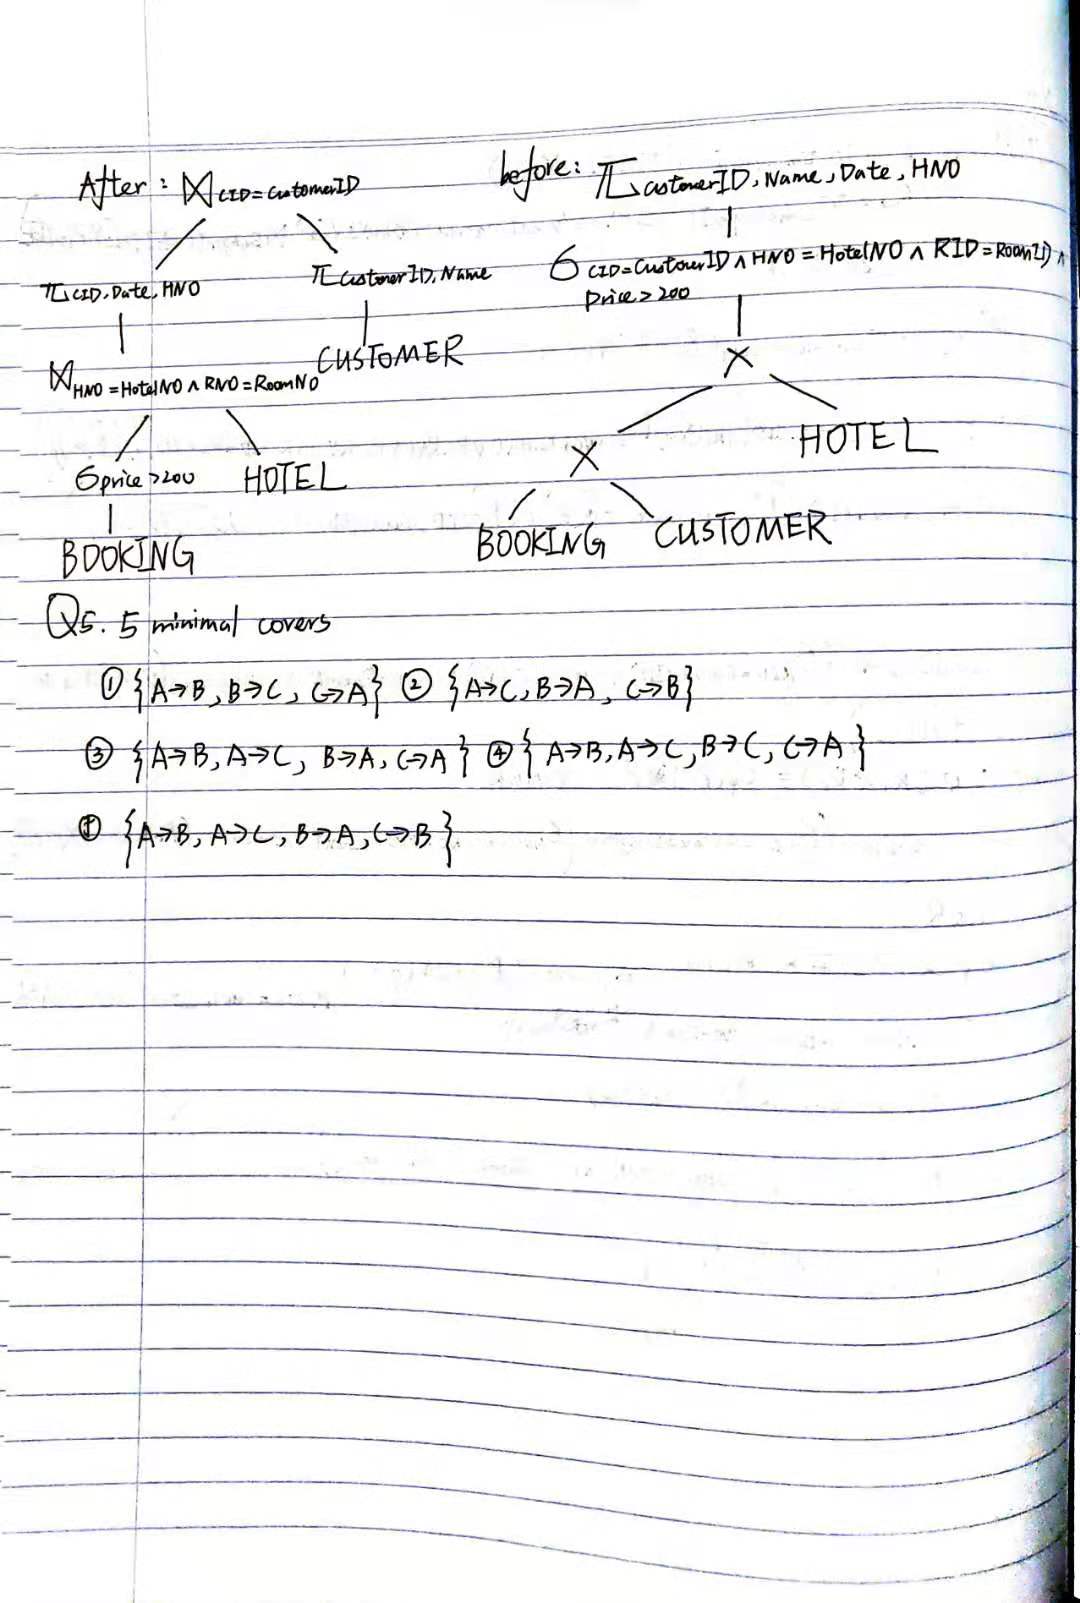 After : ⋈ CID=CustomerID
π CID, Date, HNO
π CustomerID, Name
CUSTOMER
⋈ HNO=HotelNO ∧ RNO=RoomNO
σ price>200
HOTEL
BOOKING
before: π CustomerID, Name, Date, HNO
σ CID=CustomerID ∧ HNO=HotelNO ∧ RID=RoomID ∧
price>200
×
×
HOTEL
BOOKING
CUSTOMER
Q5. 5 minimal covers
① {A→B, B→C, C→A} ② {A→C, B→A, C→B}
③ {A→B, A→C, B→A, C→A} ④ {A→B, A→C, B→C, C→A}
⑤ {A→B, A→C, B→A, C→B}